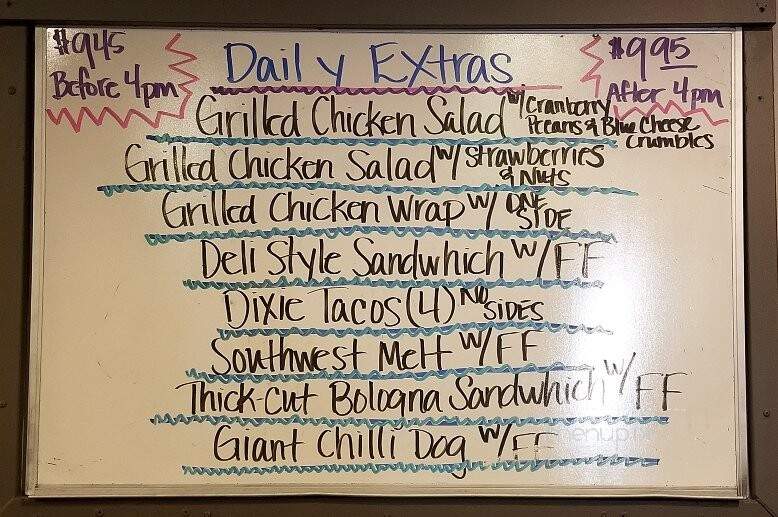 $9.45 Before 4pm
Daily Extras
$9.95 After 4pm
Grilled Chicken Salad w/ Cranberry Pecans & Blue Cheese Crumbles
Grilled Chicken Salad w/ Strawberries & Nuts
Grilled Chicken Wrap w/ ONE SIDE
Deli Style Sandwhich w/FF
Dixie Tacos (4) NO SIDES
Southwest Melt w/FF
Thick-Cut Bologna Sandwhich w/FF
Giant Chilli Dog w/FF